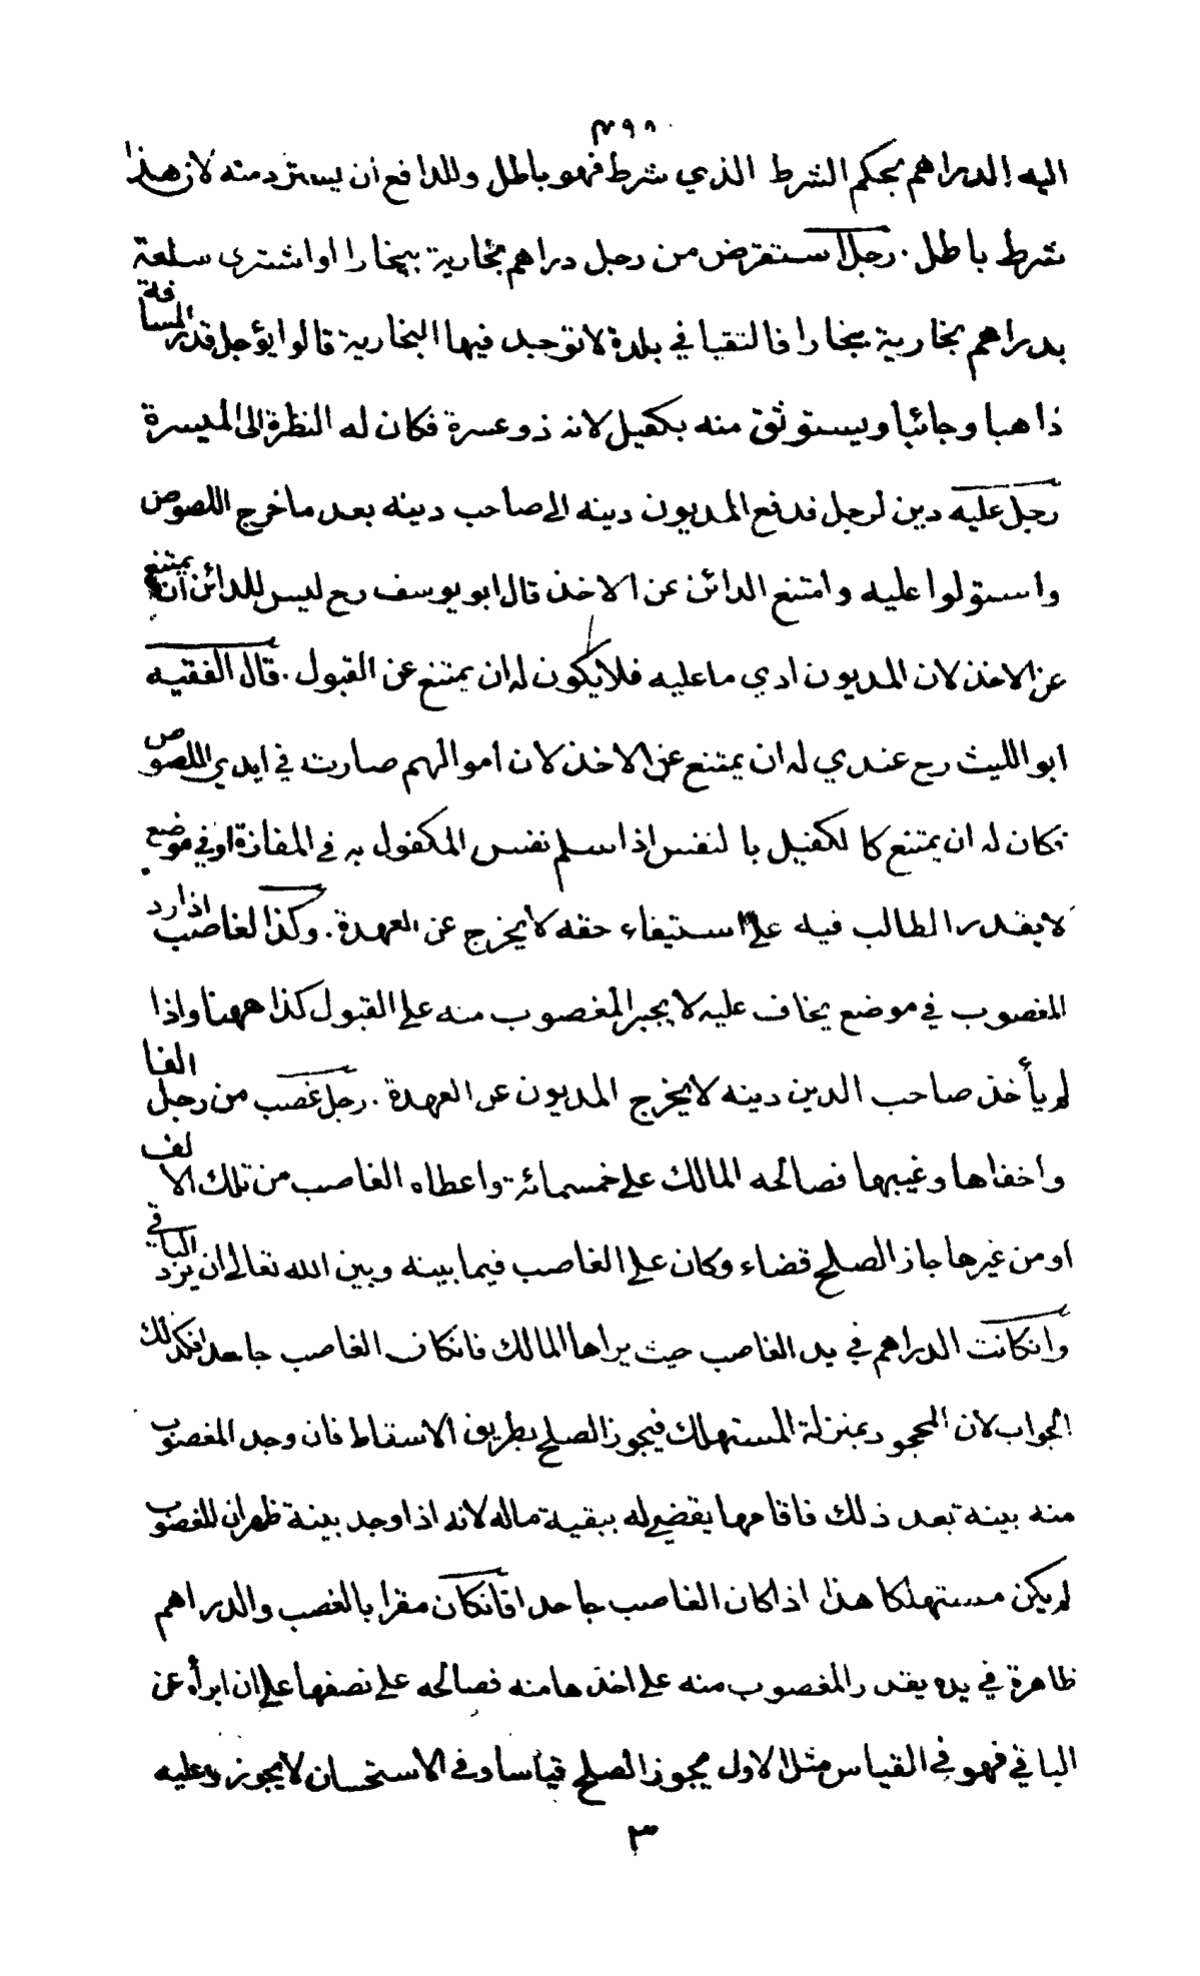 ٣٩٨
اليه الدراهم بحكم الشرط الذي شرط فهو باطل وللدافع ان يسترد منه لان هذا
شرط باطل . رجل استقرض من رجل دراهم بخارية ببخارا او اشترى سلعة
بدراهم بخارية ببخارا فالتقيا في بلدة لا توجد فيها البخارية قالوا يؤجل قدر المسافة
ذاهبا وجائبا ويستوثق منه بكفيل لانه ذو عسرة فكان له النظرة الى الميسرة
رجل عليه دين لرجل فدفع المديون دينه الى صاحب دينه بعد ما خرج اللصوص
واستولوا عليه وامتنع الدائن عن الاخذ قال ابو يوسف رح ليس للدائن ان يمتنع
عن الاخذ لان المديون ادي ما عليه فلا يكون له ان يمتنع عن القبول . قال الفقيه
ابو الليث رح عندي له ان يمتنع عن الاخذ لان اموالهم صارت في ايدي اللصوص
فكان له ان يمتنع كالكفيل بالنفس اذا سلم نفس المكفول به في المفازة او في موضع
لا يقدر الطالب فيه على استيفاء حقه لا يخرج عن العهدة . وكذا الغاصب اذا رد
المغصوب في موضع يخاف عليه لا يجبر المغصوب منه على القبول كذا ههنا واذا
لم يأخذ صاحب الدين دينه لا يخرج المديون عن العهدة . رجل غصب من رجل الفا
واخفاها وغيبها فصالحه المالك على خمسمائة واعطاه الغاصب من تلك الالف
او من غيرها جاز الصلح قضاء وكان على الغاصب فيما بينه وبين الله تعالى ان يرد الباقي
وانكانت الدراهم في يد الغاصب حيث يراها المالك فانكان الغاصب جاحدا فكذلك
الجواب لان المجحود بمنزلة المستهلك فيجوز الصلح بطريق الاسقاط فان وجد المغصوب
منه بينة بعد ذلك فاقامها يقضى له ببقية ماله لانه اذا وجد بينة ظهر ان المغصوب
لم يكن مستهلكا هذا اذا كان الغاصب جاحدا فانكان مقرا بالغصب والدراهم
ظاهرة في يده يقدر المغصوب منه على اخذها منه فصالحه على نصفها على ان ابرأه عن
الباقي فهو في القياس مثل الاول يجوز الصلح قياسا وفي الاستحسان لا يجوز وعليه
٣